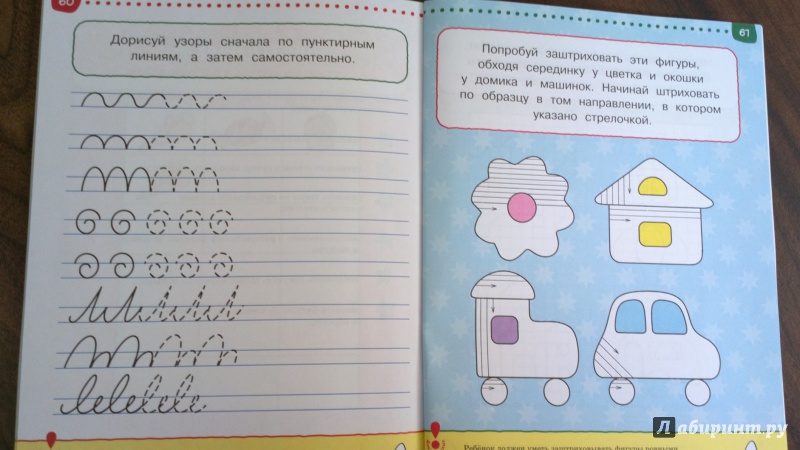 60
Дорисуй узоры сначала по пунктирным
линиям, а затем самостоятельно.
61
Попробуй заштриховать эти фигуры,
обходя серединку у цветка и окошки
у домика и машинок. Начинай штриховать
по образцу в том направлении, в котором
указано стрелочкой.
Ребёнок должен уметь заштриховывать фигуры ровными
Лабиринт.ру